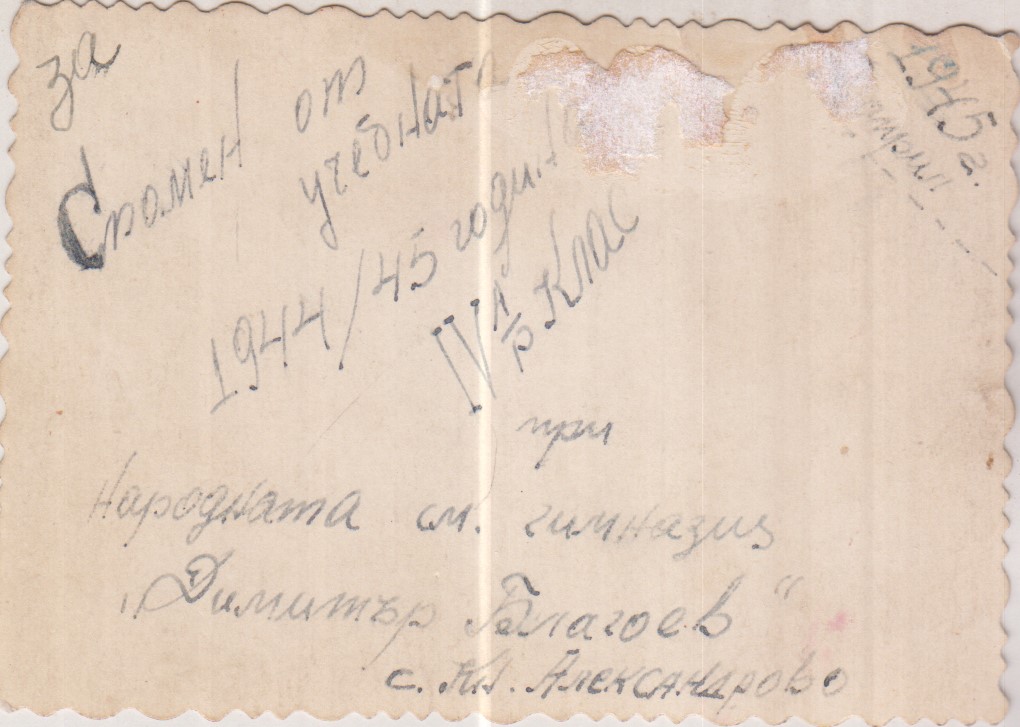 за
Спомен от
учебната
1944/45 година
IV л/р клас
при
Народната см. гимназия
„Димитър Благоев"
с. Кл. Александрово
1945 г.